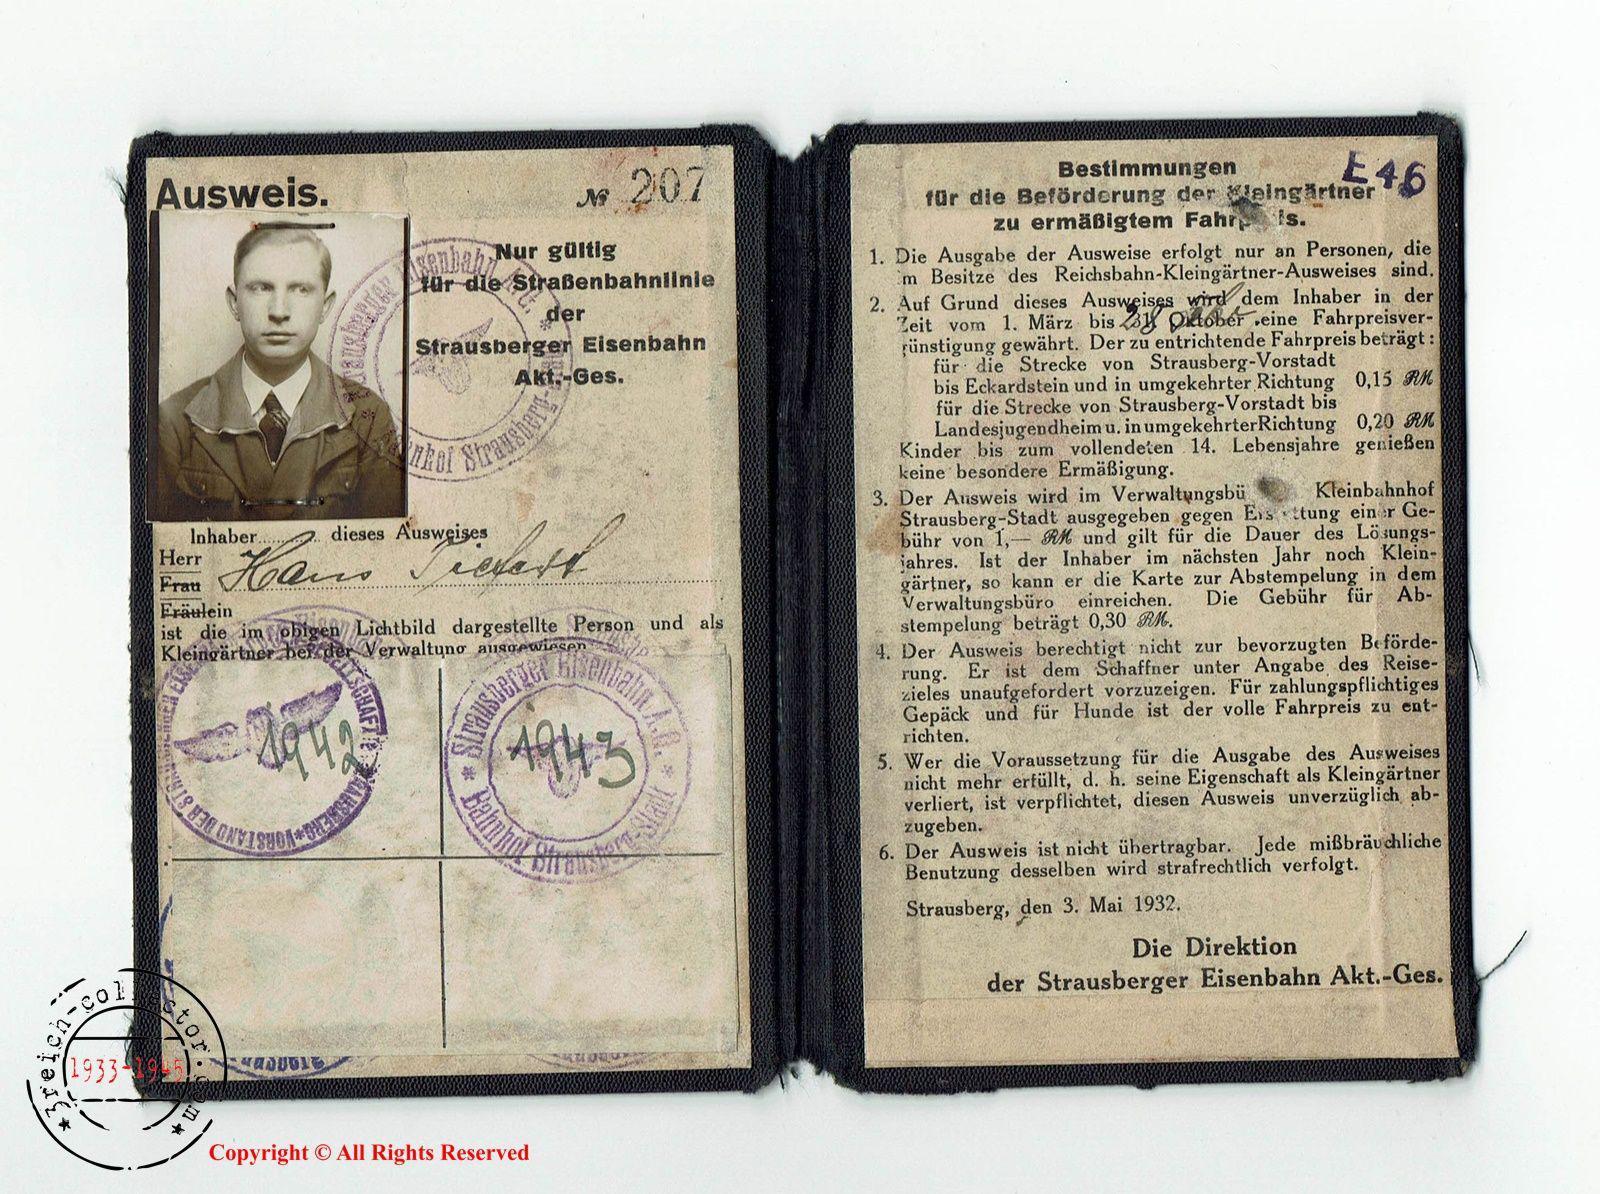 Ausweis.
№ 207
Nur gültig
für die Straßenbahnlinie
der
Strausberger Eisenbahn
Akt.-Ges.
Inhaber dieses Ausweises
Herr Hans
Frau
Fräulein
ist die im obigen Lichtbild dargestellte Person und als
Kleingärtner bei der Verwaltung ausgewiesen
1942
1943
Strausberger Eisenbahn A.G.
Bahnhof Strausberg-Stadt
E46
Bestimmungen
für die Beförderung der Kleingärtner
zu ermäßigtem Fahrpreis.
1. Die Ausgabe der Ausweise erfolgt nur an Personen, die
im Besitze des Reichsbahn-Kleingärtner-Ausweises sind.
2. Auf Grund dieses Ausweises wird dem Inhaber in der
Zeit vom 1. März bis 31. Oktober eine Fahrpreisver-
günstigung gewährt. Der zu entrichtende Fahrpreis beträgt:
für die Strecke von Strausberg-Vorstadt
bis Eckardstein und in umgekehrter Richtung 0,15 RM
für die Strecke von Strausberg-Vorstadt bis
Landesjugendheim u. in umgekehrter Richtung 0,20 RM
Kinder bis zum vollendeten 14. Lebensjahre genießen
keine besondere Ermäßigung.
3. Der Ausweis wird im Verwaltungsbü Kleinbahnhof
Strausberg-Stadt ausgegeben gegen Erstattung einer Ge-
bühr von 1,— RM und gilt für die Dauer des Lösungs-
jahres. Ist der Inhaber im nächsten Jahr noch Klein-
gärtner, so kann er die Karte zur Abstempelung in dem
Verwaltungsbüro einreichen. Die Gebühr für Ab-
stempelung beträgt 0,30 RM.
4. Der Ausweis berechtigt nicht zur bevorzugten Beförde-
rung. Er ist dem Schaffner unter Angabe des Reise-
zieles unaufgefordert vorzuzeigen. Für zahlungspflichtiges
Gepäck und für Hunde ist der volle Fahrpreis zu ent-
richten.
5. Wer die Voraussetzung für die Ausgabe des Ausweises
nicht mehr erfüllt, d. h. seine Eigenschaft als Kleingärtner
verliert, ist verpflichtet, diesen Ausweis unverzüglich ab-
zugeben.
6. Der Ausweis ist nicht übertragbar. Jede mißbräuchliche
Benutzung desselben wird strafrechtlich verfolgt.
Strausberg, den 3. Mai 1932.
Die Direktion
der Strausberger Eisenbahn Akt.-Ges.
3reich-collector.com
1933-1945
Copyright © All Rights Reserved